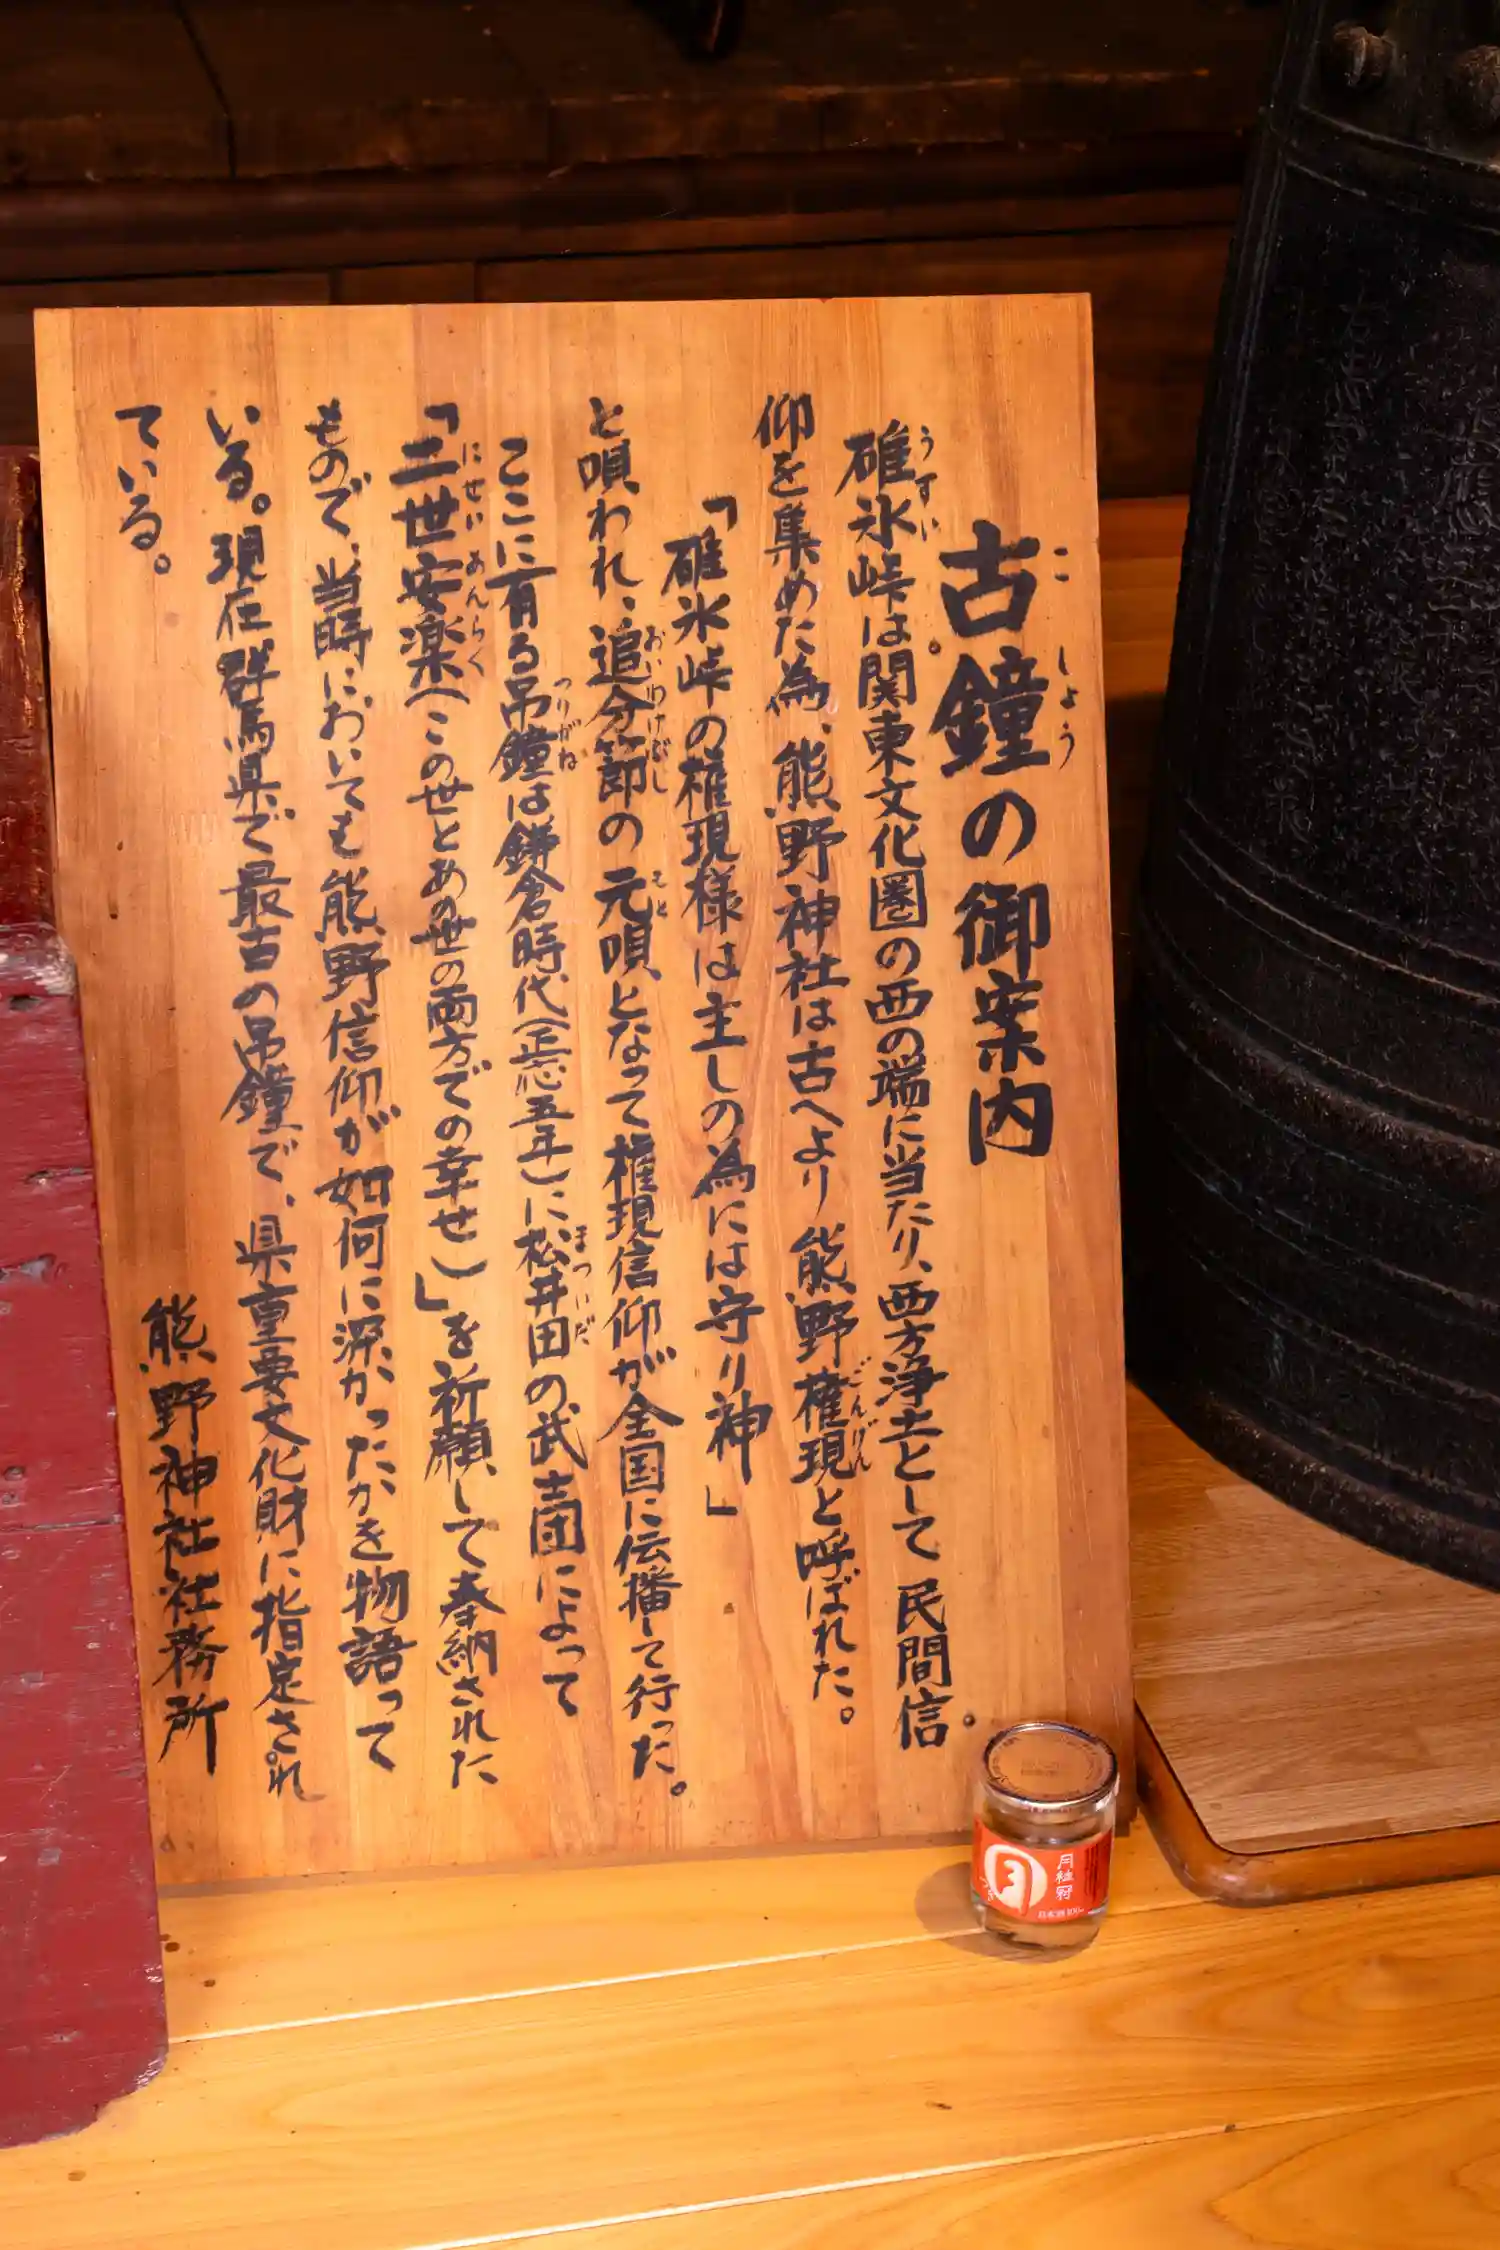 古鐘の御案内
こ しょう
碓氷峠は関東文化圏の西の端に当たり、西方浄土として民間信
うすい
仰を集めた為、熊野神社は古へより熊野権現と呼ばれた。
ごんげん
「碓氷峠の権現様は主しの為には守り神」
と唄われ、追分節の元唄となって権現信仰が全国に伝播して行った。
おいわけぶし もと
ここに有る吊鐘は鎌倉時代(正応五年)に松井田の武士団によって
つりがね まついだ
「二世安楽(この世とあの世の両方での幸せ)」を祈願して奉納された
にせいあんらく
もので、当時においても熊野信仰が如何に深かったかを物語って
いる。現在、群馬県で最古の吊鐘で、県重要文化財に指定され
ている。
熊野神社社務所
月桂冠
月
つき